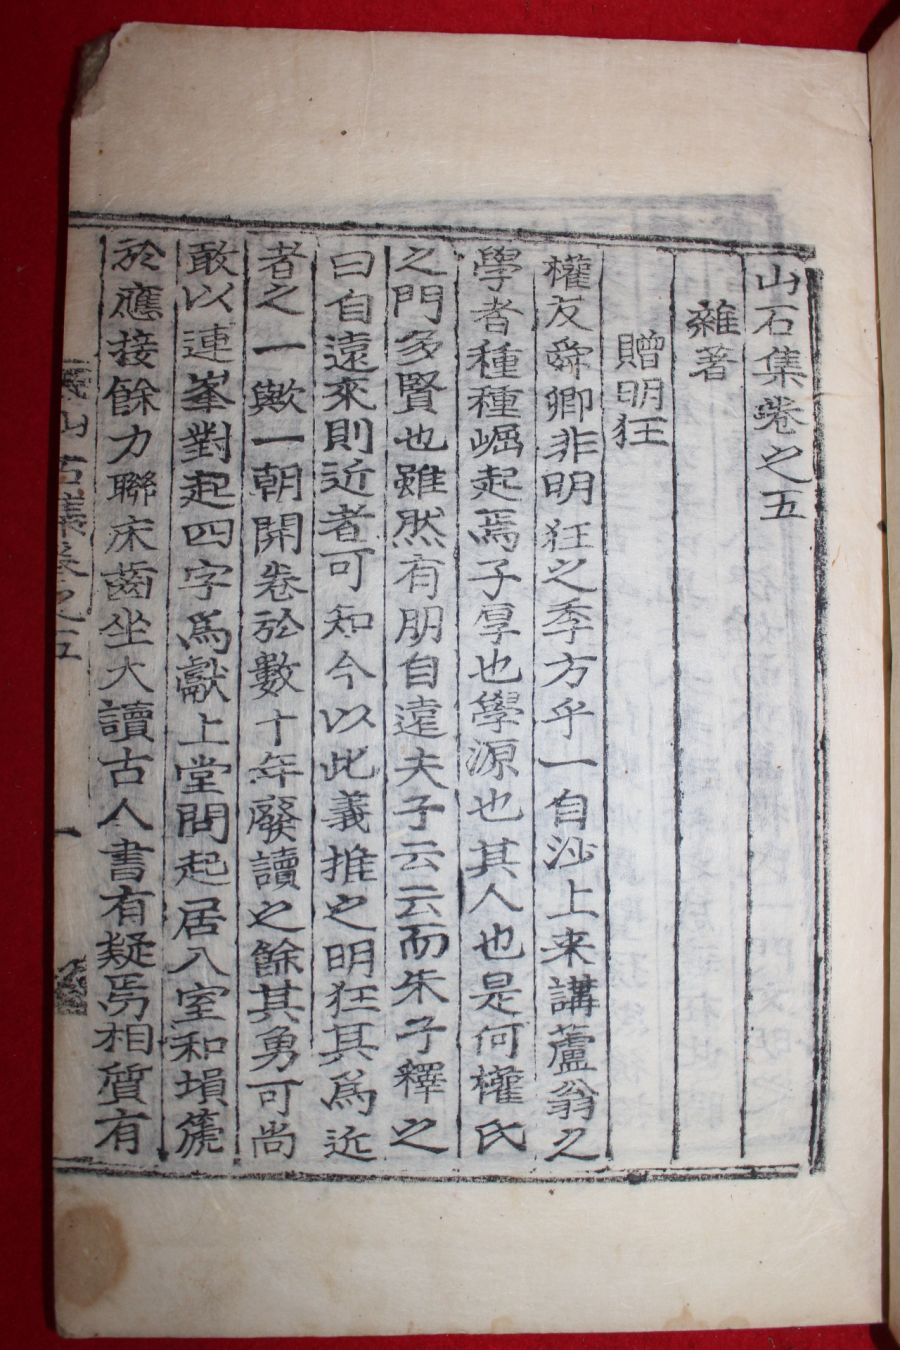 山石集卷之五
雜著
贈明狂
權友舜卿非明狂之季方乎一自沙上来講蘆翁之
學者種種崛起焉子厚也學源也其人也是何權氏
之門多賢也雖然有朋自遠夫子云云而朱子釋之
曰自遠來則近者可知今以此義推之明狂其爲近
者之一歟一朝開卷於數十年廢讀之餘其勇可尚
敢以連峯對起四字爲獻上堂問起居入室和塤篪
於應接餘力聯床齒坐大讀古人書有疑焉相質有
山石集卷之五 一